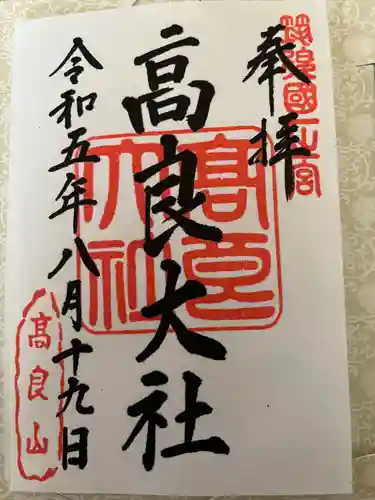 筑後國一之宮
奉拝
高良大社
高良大社
令和五年八月十九日
高良山